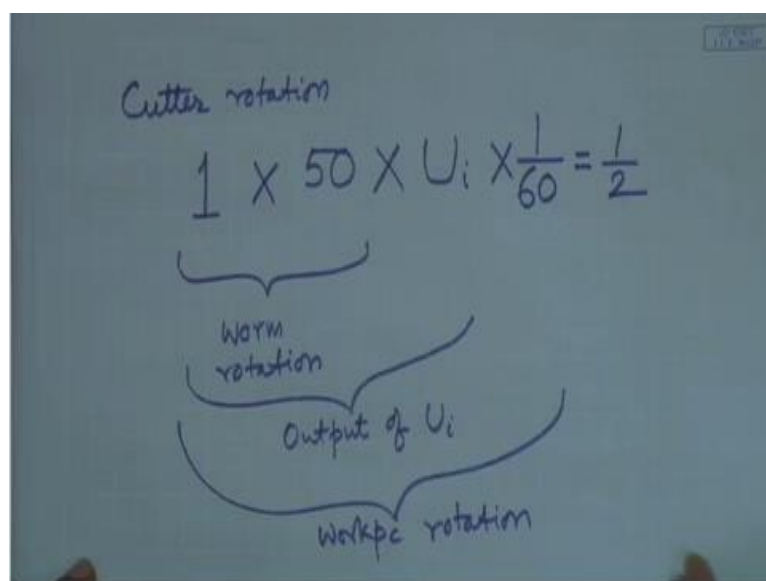 Cutter rotation
1 × 50 × Ui × 1/60 = 1/2
Worm
rotation
Output of Ui
Workpc rotation